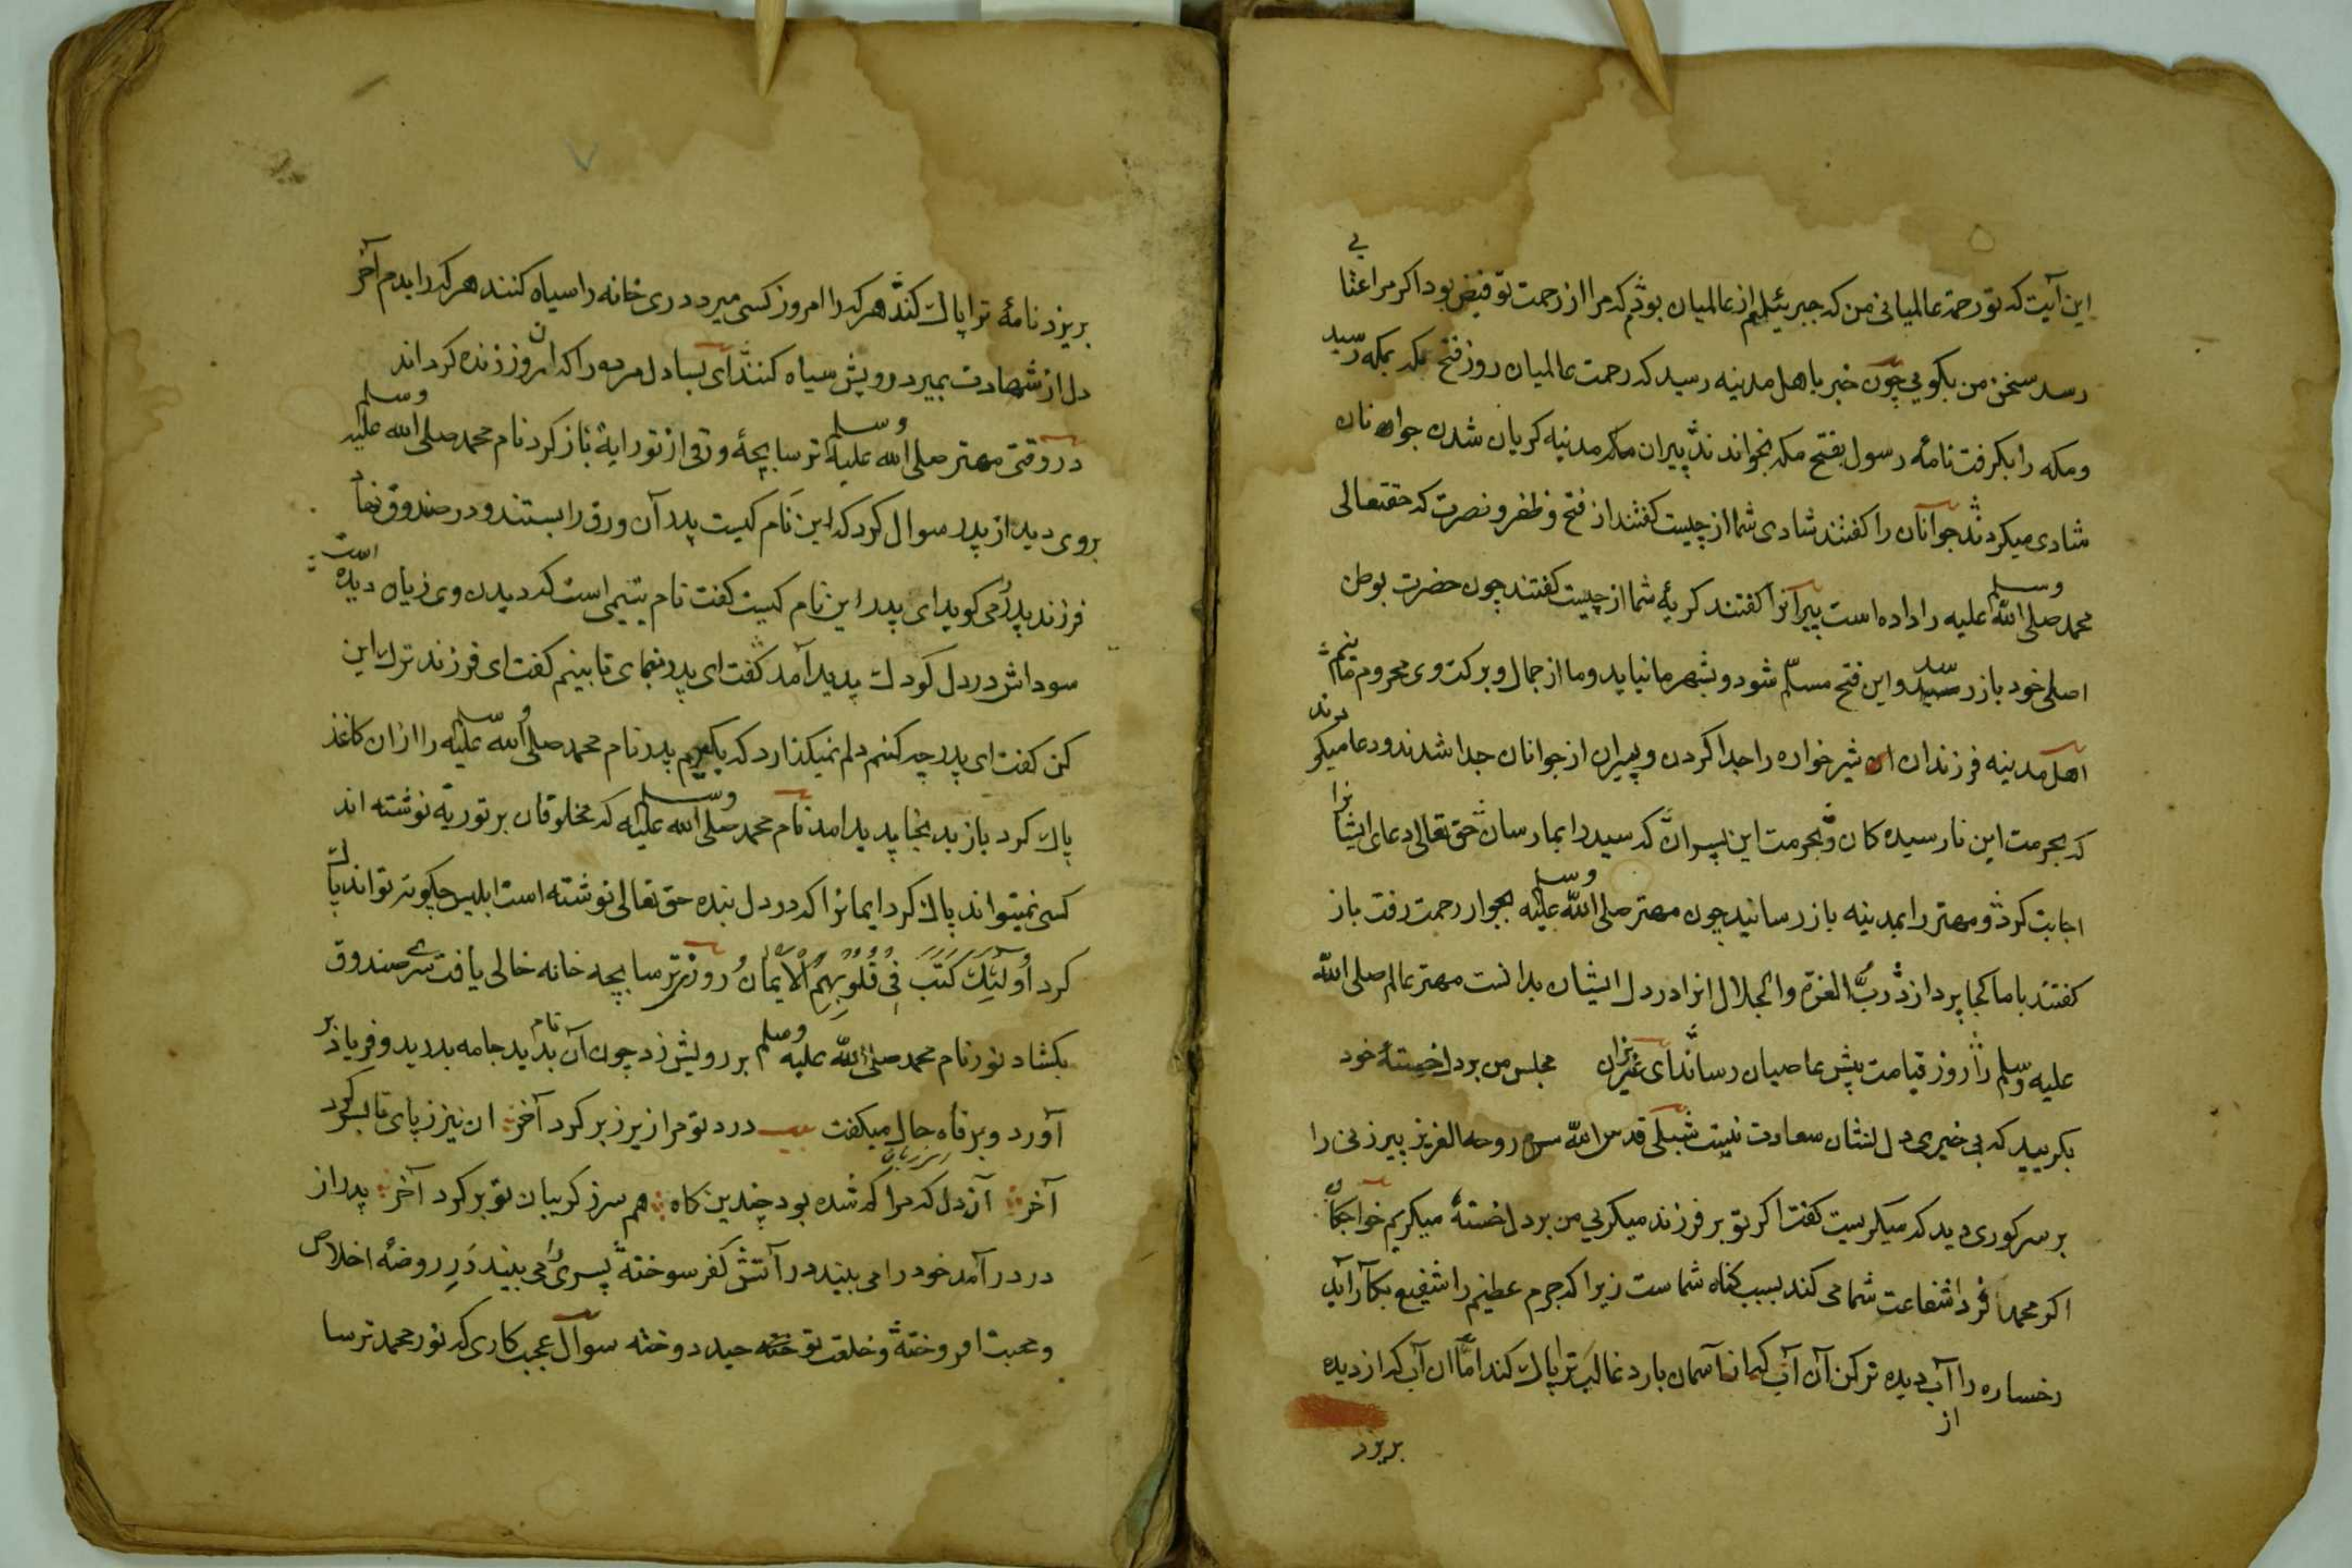 این آیت که تو رحمة عالمیانی من که جبریئیلم از عالمیان بودم که مرا از رحمت تو فیض بود اکر مرا عتابی
رسد سخن من بکویی چون خبر باهل مدینه رسید که رحمت عالمیان روز فتح مکه بمکه رسید
ومکه را بکرفت نامهٔ رسول بفتح مکه بخواندند پیران مدینه کریان شدن جوانان
شادی میکردند جوانان را کفتند شادی شما از چیست کفتند از فتح و ظفر و نصرت که حقتعالی
محمد صلی الله علیه وسلم را داده است پیرانرا کفتند کریهٔ شما از چیست کفتند چون حضرت بوطن
اصلی خود باز رسید واین فتح مسلّم شود و بشهر ما نیاید وما از جمال و برکت وی محروم مانیم
اهل مدینه فرزندان شیرخواره را جدا کردن و پیران از جوانان جدا شدند و دعا میکردند
که بحرمت این نارسیده کان و بحرمت این پیران که سید را بما رسان حق تعالی دعای ایشانرا
اجابت کرد و مهتر را بمدینه باز رسانید چون مهتر صلی الله علیه وسلم بجوار رحمت رفت باز
کفتند با ما کجا پردازد ربّ العزة والجلال انرا در دل ایشان بدانست مهتر عالم صلی الله
علیه وسلم را روز قیامت پیش عاصیان رساند ای عزیزان مجلس من بر دل خستهٔ خود
بکریید که بی خبری دل نشان سعادت نیست شبلی قدس الله سره روحه العزیز پیرزنی را
بر سر کوری دید که میکریست کفت اکر تو بر فرزند میکریی من بر دل خستهٔ میکریم خواجکان
اکر محمد فردا شفاعت شما می کند بسبب کناه شماست زیرا که جرم عظیم را شفیع بکار آید
رخساره را از آب دیده تر کن آن آب کز آسمان بارد غالب ترا پاک کند اما ان آب که از دیده
بریزد
بریزد نامهٔ ترا پاک کند هر که را امروز کسی میرد دری خانه را سیاه کنند هر که را بدم آخر
دل از شهادت بمیرد رویش سیاه کنند ای بسا دل مرده را که آن روز زنده کرداند
در وقتی مهتر صلی الله علیه وسلم ترسا بچهٔ ورقی از تورایة باز کرد نام محمد صلی الله علیه وسلم
بروی دید از پدر سوال کرد که این نام کیست پدر آن ورق را بستند و در صندوق نهاد
فرزند پدر را می کوید ای پدر این نام کیست کفت نام یتیمی است که دیدن وی زیان دیده است
سوداش در دل کودک پدید آمد کفت ای پدر بنمای تا بینم کفت ای فرزند ترک این
کن کفت ای پدر چه کنم دلم نمیکذارد که بکیرم پدر نام محمد صلی الله علیه وسلم را از ان کاغذ
پاک کرد باز بدنجا پدید امد نام محمد صلی الله علیه وسلم که مخلوقان بر توریة نوشته اند
کسی نمیتواند پاک کرد ایمانرا که در دل بنده حق تعالی نوشته است ابلیس چکونه تواند پاک
کرد اُولٰئِکَ کَتَبَ فِی قُلُوبِهِمُ الْاِیمَانَ روزی ترسا بچه خانه خالی یافت سر صندوق
بکشاد نور نام محمد صلی الله علیه وسلم بر رویش زد چون آن نام بدید جامه بدرید و فریاد بر
آورد و بزبان حال میکفت بیت درد تو مرا زیر زبر کرد آخر ان نیز ز پای تا بسر کرد
آخر آن دل که مرا کم شده بود چندین کاه هم سر ز کریبان تو بر کرد آخر پدر از
در درآمد خود را می بیند در آتش کفر سوختهٔ پسری را می بیند در روضهٔ اخلاص
و محبت افروختهٔ و خلعت توحید دوخته سوال عجب کاری که نور محمد ترسا